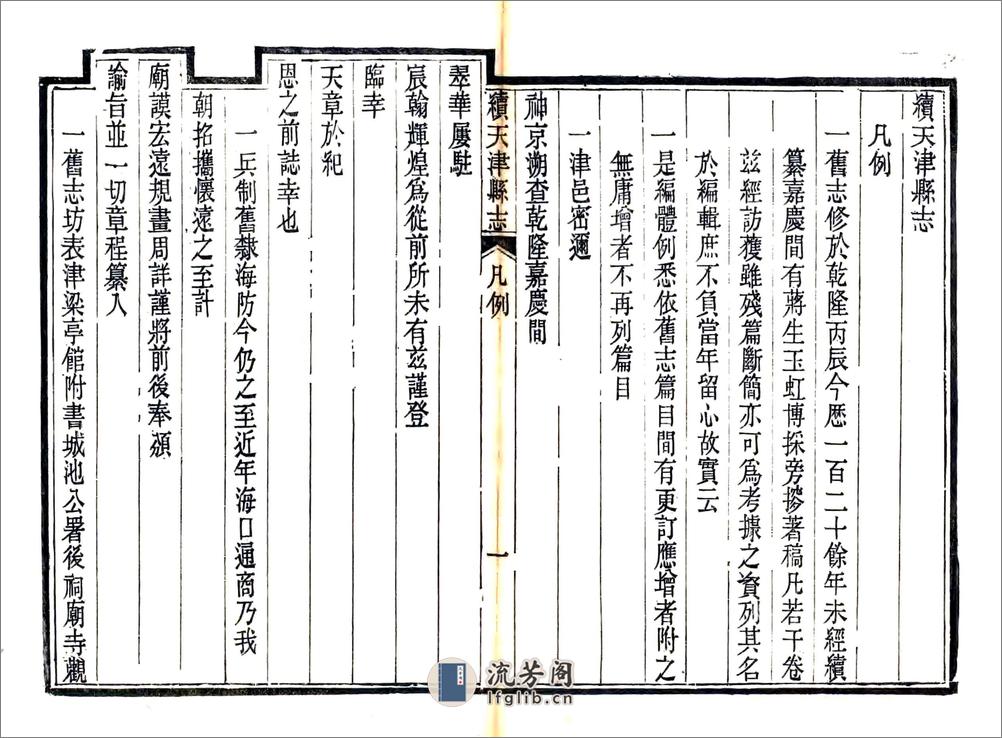 續天津縣志
凡例
一舊志修於乾隆丙辰今歷一百二十餘年未經續
纂嘉慶間有蔣生玉虹博採旁搜著稿凡若干卷
茲經訪獲雖殘篇斷簡亦可爲考據之資列其名
於編輯庶不負當年留心故實云
一是編體例悉依舊志篇目間有更訂應增者附之
無庸增者不再列篇目
一津邑密邇
神京溯查乾隆嘉慶間
續天津縣志 凡例 一
翠華屢駐
宸翰輝煌爲從前所未有茲謹登
臨幸
天章於紀
恩之前誌幸也
一兵制舊隸海防今仍之至近年海口通商乃我
朝招攜懷遠之至計
廟謨宏遠規畫周詳謹將前後奉頒
諭旨並一切章程纂入
一舊志坊表津梁亭館附書城池公署後祠廟寺觀
流芳阁
lfglib.cn